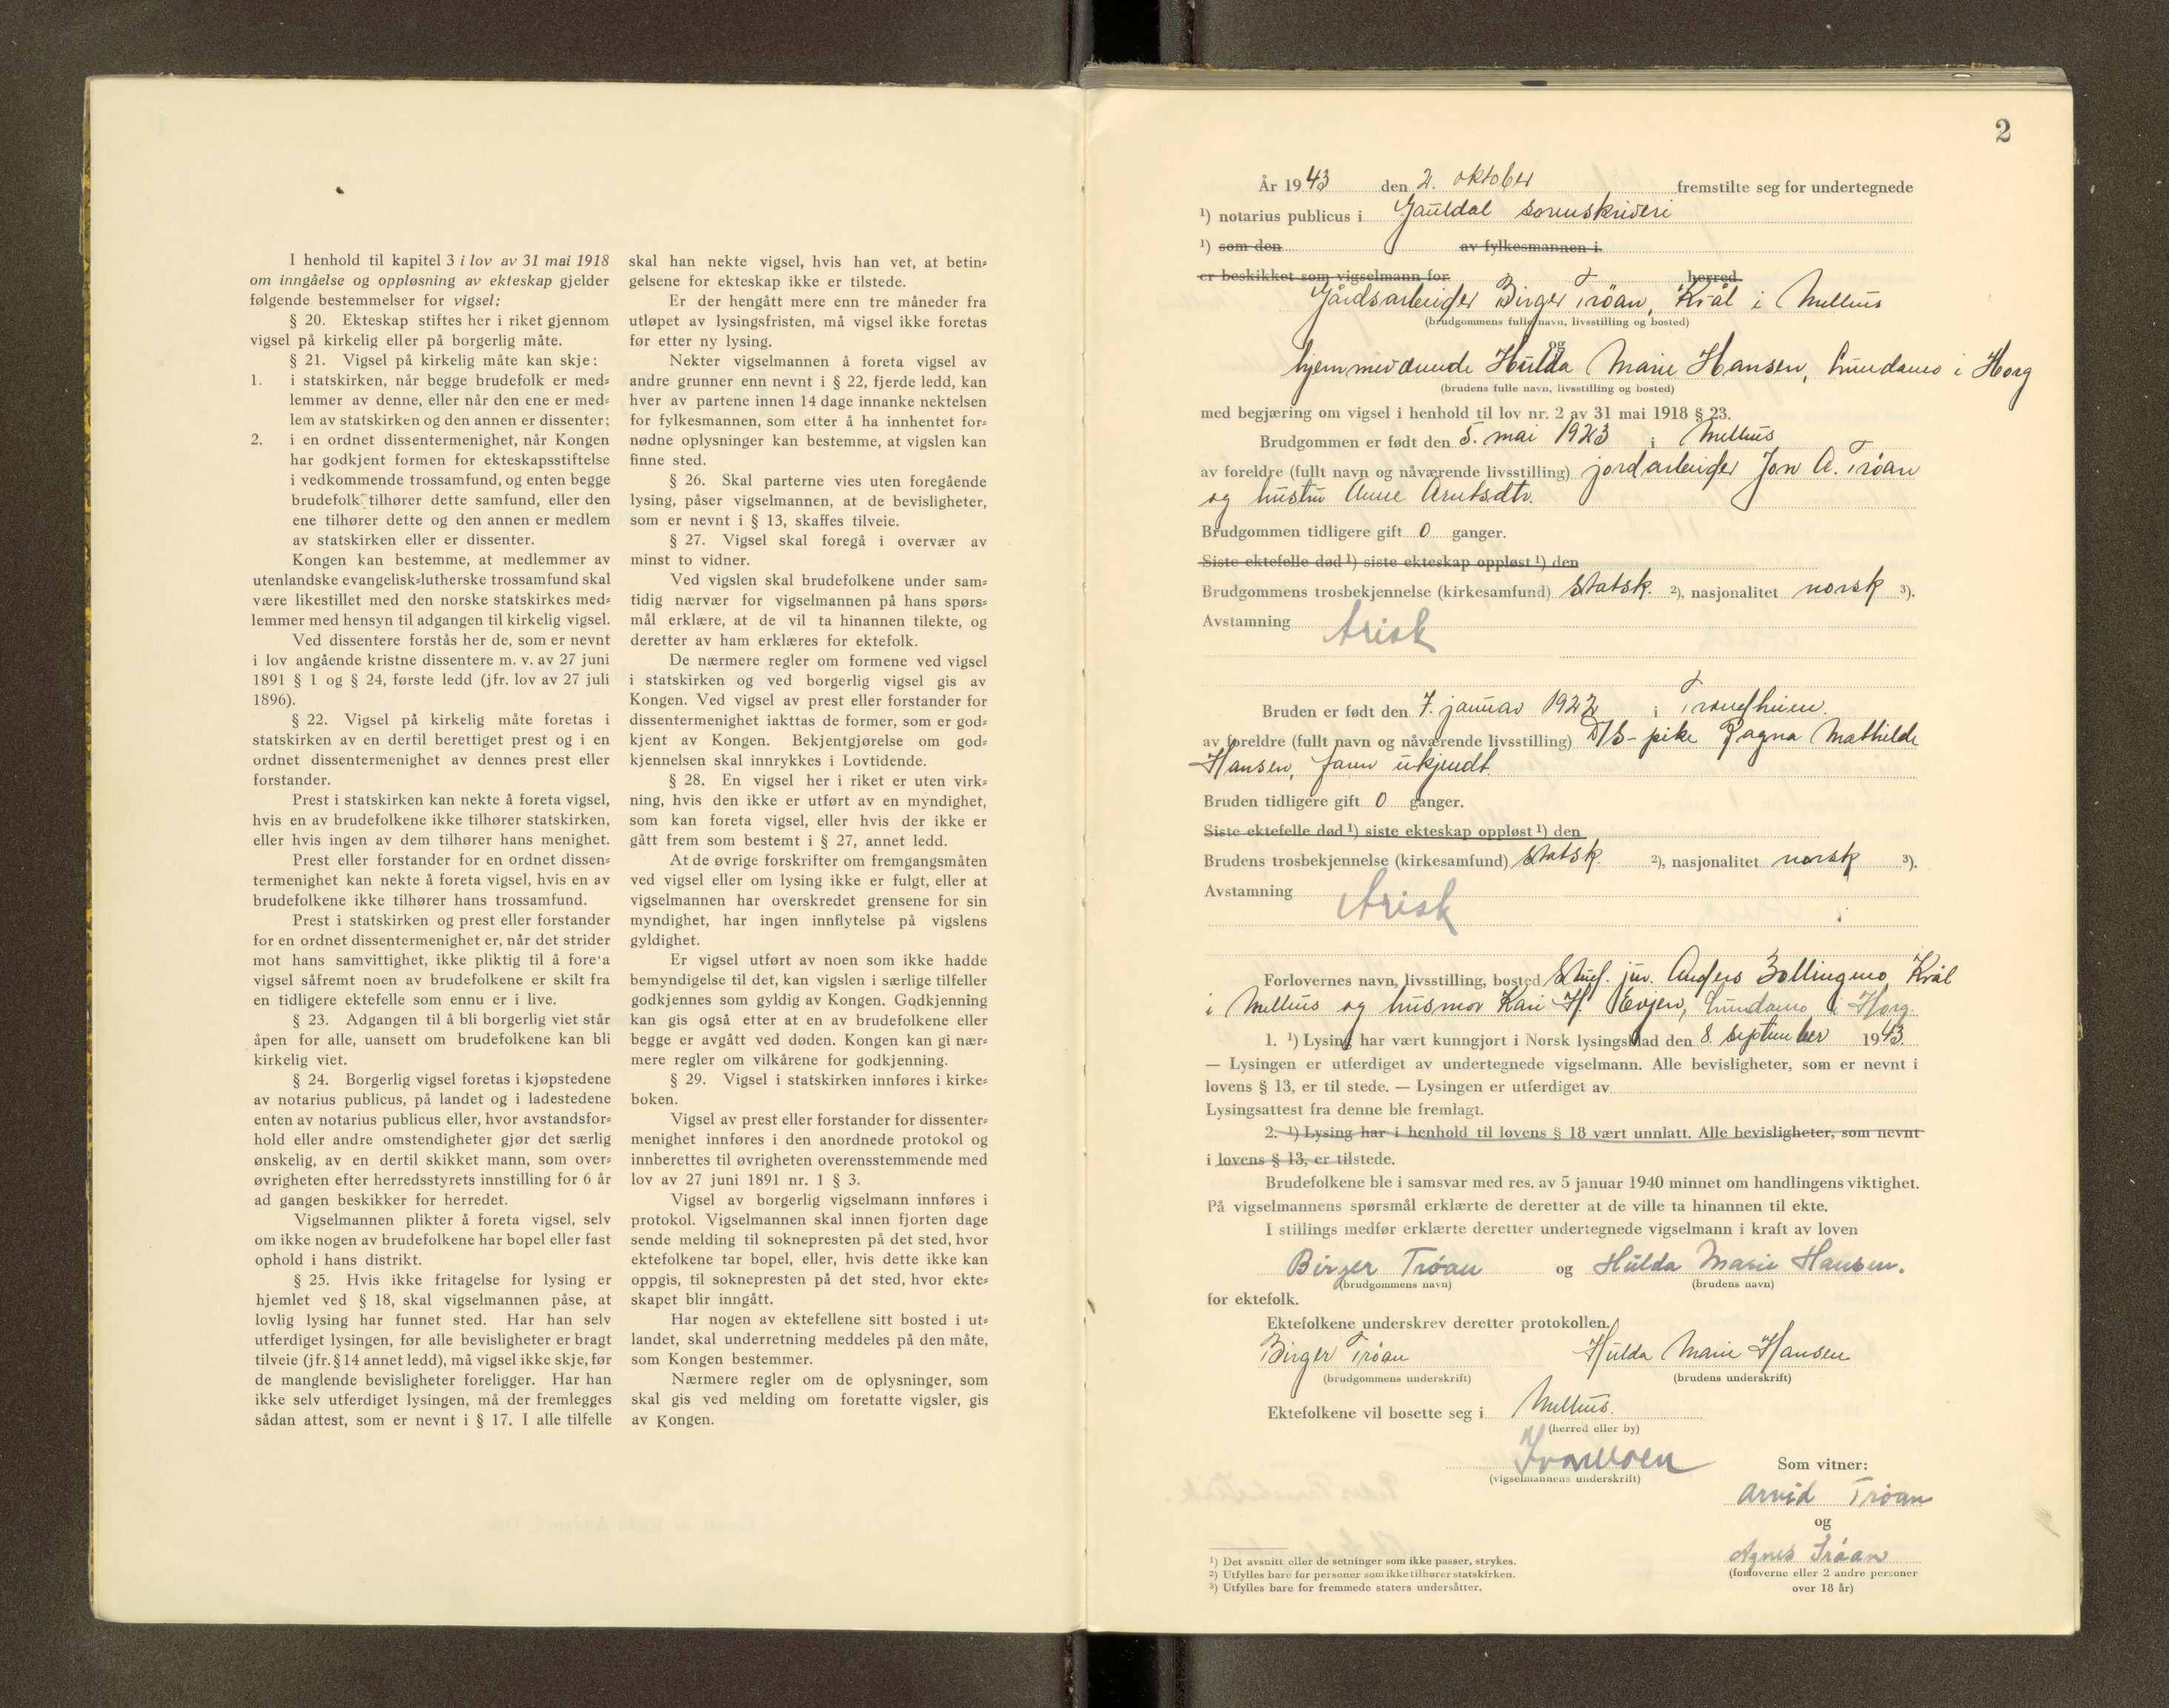 I henhold til kapitel 3 i lov av 31 mai 1918
om inngåelse og oppløsning av ekteskap gjelder
følgende bestemmelser for vigsel:
§ 20. Ekteskap stiftes her i riket gjennom
vigsel på kirkelig eller på borgerlig måte.
§ 21. Vigsel på kirkelig måte kan skje:
1. i statskirken, når begge brudefolk er med=
lemmer av denne, eller når den ene er med=
lem av statskirken og den annen er dissenter;
2. i en ordnet dissentermenighet, når Kongen
har godkjent formen for ekteskapsstiftelse
i vedkommende trossamfund, og enten begge
brudefolk tilhører dette samfund, eller den
ene tilhører dette og den annen er medlem
av statskirken eller er dissenter.
Kongen kan bestemme, at medlemmer av
utenlandske evangelisk=lutherske trossamfund skal
være likestillet med den norske statskirkes med=
lemmer med hensyn til adgangen til kirkelig vigsel.
Ved dissentere forstås her de, som er nevnt
i lov angående kristne dissentere m. v. av 27 juni
1891 § 1 og § 24, første ledd (jfr. lov av 27 juli
1896).
§ 22. Vigsel på kirkelig måte foretas i
statskirken av en dertil berettiget prest og i en
ordnet dissentermenighet av dennes prest eller
forstander.
Prest i statskirken kan nekte å foreta vigsel,
hvis en av brudefolkene ikke tilhører statskirken,
eller hvis ingen av dem tilhører hans menighet.
Prest eller forstander for en ordnet dissen=
termenighet kan nekte å foreta vigsel, hvis en av
brudefolkene ikke tilhører hans trossamfund.
Prest i statskirken og prest eller forstander
for en ordnet dissentermenighet er, når det strider
mot hans samvittighet, ikke pliktig til å fore'a
vigsel såfremt noen av brudefolkene er skilt fra
en tidligere ektefelle som ennu er i live.
§ 23. Adgangen til å bli borgerlig viet står
åpen for alle, uansett om brudefolkene kan bli
kirkelig viet.
§ 24. Borgerlig vigsel foretas i kjøpstedene
av notarius publicus, på landet og i ladestedene
enten av notarius publicus eller, hvor avstandsfor=
hold eller andre omstendigheter gjør det særlig
ønskelig, av en dertil skikket mann, som over=
øvrigheten efter herredsstyrets innstilling for 6 år
ad gangen beskikker for herredet.
Vigselmannen plikter å foreta vigsel, selv
om ikke nogen av brudefolkene har bopel eller fast
ophold i hans distrikt.
§ 25. Hvis ikke fritagelse for lysing er
hjemlet ved § 18, skal vigselmannen påse, at
lovlig lysing har funnet sted. Har han selv
utferdiget lysingen, før alle bevisligheter er bragt
tilveie (jfr. § 14 annet ledd), må vigsel ikke skje, før
de manglende bevisligheter foreligger. Har han
ikke selv utferdiget lysingen, må der fremlegges
sådan attest, som er nevnt i § 17. I alle tilfelle
skal han nekte vigsel, hvis han vet, at betin=
gelsene for ekteskap ikke er tilstede.
Er der hengått mere enn tre måneder fra
utløpet av lysingsfristen, må vigsel ikke foretas
før etter ny lysing.
Nekter vigselmannen å foreta vigsel av
andre grunner enn nevnt i § 22, fjerde ledd, kan
hver av partene innen 14 dage innanke nektelsen
for fylkesmannen, som etter å ha innhentet for=
nødne oplysninger kan bestemme, at vigslen kan
finne sted.
§ 26. Skal parterne vies uten foregående
lysing, påser vigselmannen, at de bevisligheter,
som er nevnt i § 13, skaffes tilveie.
§ 27. Vigsel skal foregå i overvær av
minst to vidner.
Ved vigslen skal brudefolkene under sam=
tidig nærvær for vigselmannen på hans spørs=
mål erklære, at de vil ta hinannen tilekte, og
deretter av ham erklæres for ektefolk.
De nærmere regler om formene ved vigsel
i statskirken og ved borgerlig vigsel gis av
Kongen. Ved vigsel av prest eller forstander for
dissentermenighet iakttas de former, som er god=
kjent av Kongen. Bekjentgjørelse om god=
kjennelsen skal innrykkes i Lovtidende.
§ 28. En vigsel her i riket er uten virk=
ning, hvis den ikke er utført av en myndighet,
som kan foreta vigsel, eller hvis der ikke er
gått frem som bestemt i § 27, annet ledd.
At de øvrige forskrifter om fremgangsmåten
ved vigsel eller om lysing ikke er fulgt, eller at
vigselmannen har overskredet grensene for sin
myndighet, har ingen innflytelse på vigslens
gyldighet.
Er vigsel utført av noen som ikke hadde
bemyndigelse til det, kan vigslen i særlige tilfeller
godkjennes som gyldig av Kongen. Godkjenning
kan gis også etter at en av brudefolkene eller
begge er avgått ved døden. Kongen kan gi nær=
mere regler om vilkårene for godkjenning.
§ 29. Vigsel i statskirken innføres i kirke=
boken.
Vigsel av prest eller forstander for dissenter=
menighet innføres i den anordnede protokol og
innberettes til øvrigheten overensstemmende med
lov av 27 juni 1891 nr. 1 § 3.
Vigsel av borgerlig vigselmann innføres i
protokol. Vigselmannen skal innen fjorten dage
sende melding til soknepresten på det sted, hvor
ektefolkene tar bopel, eller, hvis dette ikke kan
oppgis, til soknepresten på det sted, hvor ekte=
skapet blir inngått.
Har nogen av ektefellene sitt bosted i ut=
landet, skal underretning meddeles på den måte,
som Kongen bestemmer.
Nærmere regler om de oplysninger, som
skal gis ved melding om foretatte vigsler, gis
av Kongen.
2
År 1943 den 2. oktober fremstilte seg for undertegnede
¹) notarius publicus i Gauldal sorenskriveri
¹) som den av fylkesmannen i
er beskikket som vigselmann for herred.
Gårdsarbeider Birger Trøan, Kvål i Melhus
(brudgommens fulle navn, livsstilling og bosted)
og
hjemmeværende Hulda Marie Hansen, Lundamo i Horg
(brudens fulle navn, livsstilling og bosted)
med begjæring om vigsel i henhold til lov nr. 2 av 31 mai 1918 § 23.
Brudgommen er født den 5. mai 1923 i Melhus
av foreldre (fullt navn og nåværende livsstilling) jordarbeider Jon A. Trøan
og hustru Anne Arntsdtr.
Brudgommen tidligere gift 0 ganger.
Siste ektefelle død ¹) siste ekteskap oppløst ¹) den
Brudgommens trosbekjennelse (kirkesamfund) Statsk. ²), nasjonalitet norsk ³).
Avstamning Arisk
Bruden er født den 7. januar 1922 i Trondheim.
av foreldre (fullt navn og nåværende livsstilling) D/S- pike Ragna Mathilde
Hansen, faren ukjendt.
Bruden tidligere gift 0 ganger.
Siste ektefelle død ¹) siste ekteskap oppløst ¹) den
Brudens trosbekjennelse (kirkesamfund) Statsk. ²), nasjonalitet norsk ³).
Avstamning Arisk
Forlovernes navn, livsstilling, bosted Stud. jur. Anders Bollingmo, Kvål
i Melhus og husmor Kari H. Evjen, Lundamo i Horg.
1. ¹) Lysing har vært kunngjort i Norsk lysingsblad den 8. september 1943.
— Lysingen er utferdiget av undertegnede vigselmann. Alle bevisligheter, som er nevnt i
lovens § 13, er til stede. — Lysingen er utferdiget av
Lysingsattest fra denne ble fremlagt.
2. ¹) Lysing har i henhold til lovens § 18 vært unnlatt. Alle bevisligheter, som nevnt
i lovens § 13, er tilstede.
Brudefolkene ble i samsvar med res. av 5 januar 1940 minnet om handlingens viktighet.
På vigselmannens spørsmål erklærte de deretter at de ville ta hinannen til ekte.
I stillings medfør erklærte deretter undertegnede vigselmann i kraft av loven
Birger Trøan og Hulda Marie Hansen.
(brudgommens navn) (brudens navn)
for ektefolk.
Ektefolkene underskrev deretter protokollen.
Birger Trøan Hulda Marie Hansen
(brudgommens underskrift) (brudens underskrift)
Ektefolkene vil bosette seg i Melhus.
(herred eller by)
(vigselmannens underskrift)
Som vitner:
Arvid Trøan
og
Agnes Trøan
(forloverne eller 2 andre personer
over 18 år)
¹) Det avsnitt eller de setninger som ikke passer, strykes.
²) Utfylles bare for personer som ikke tilhører statskirken.
³) Utfylles bare for fremmede staters undersåtter.